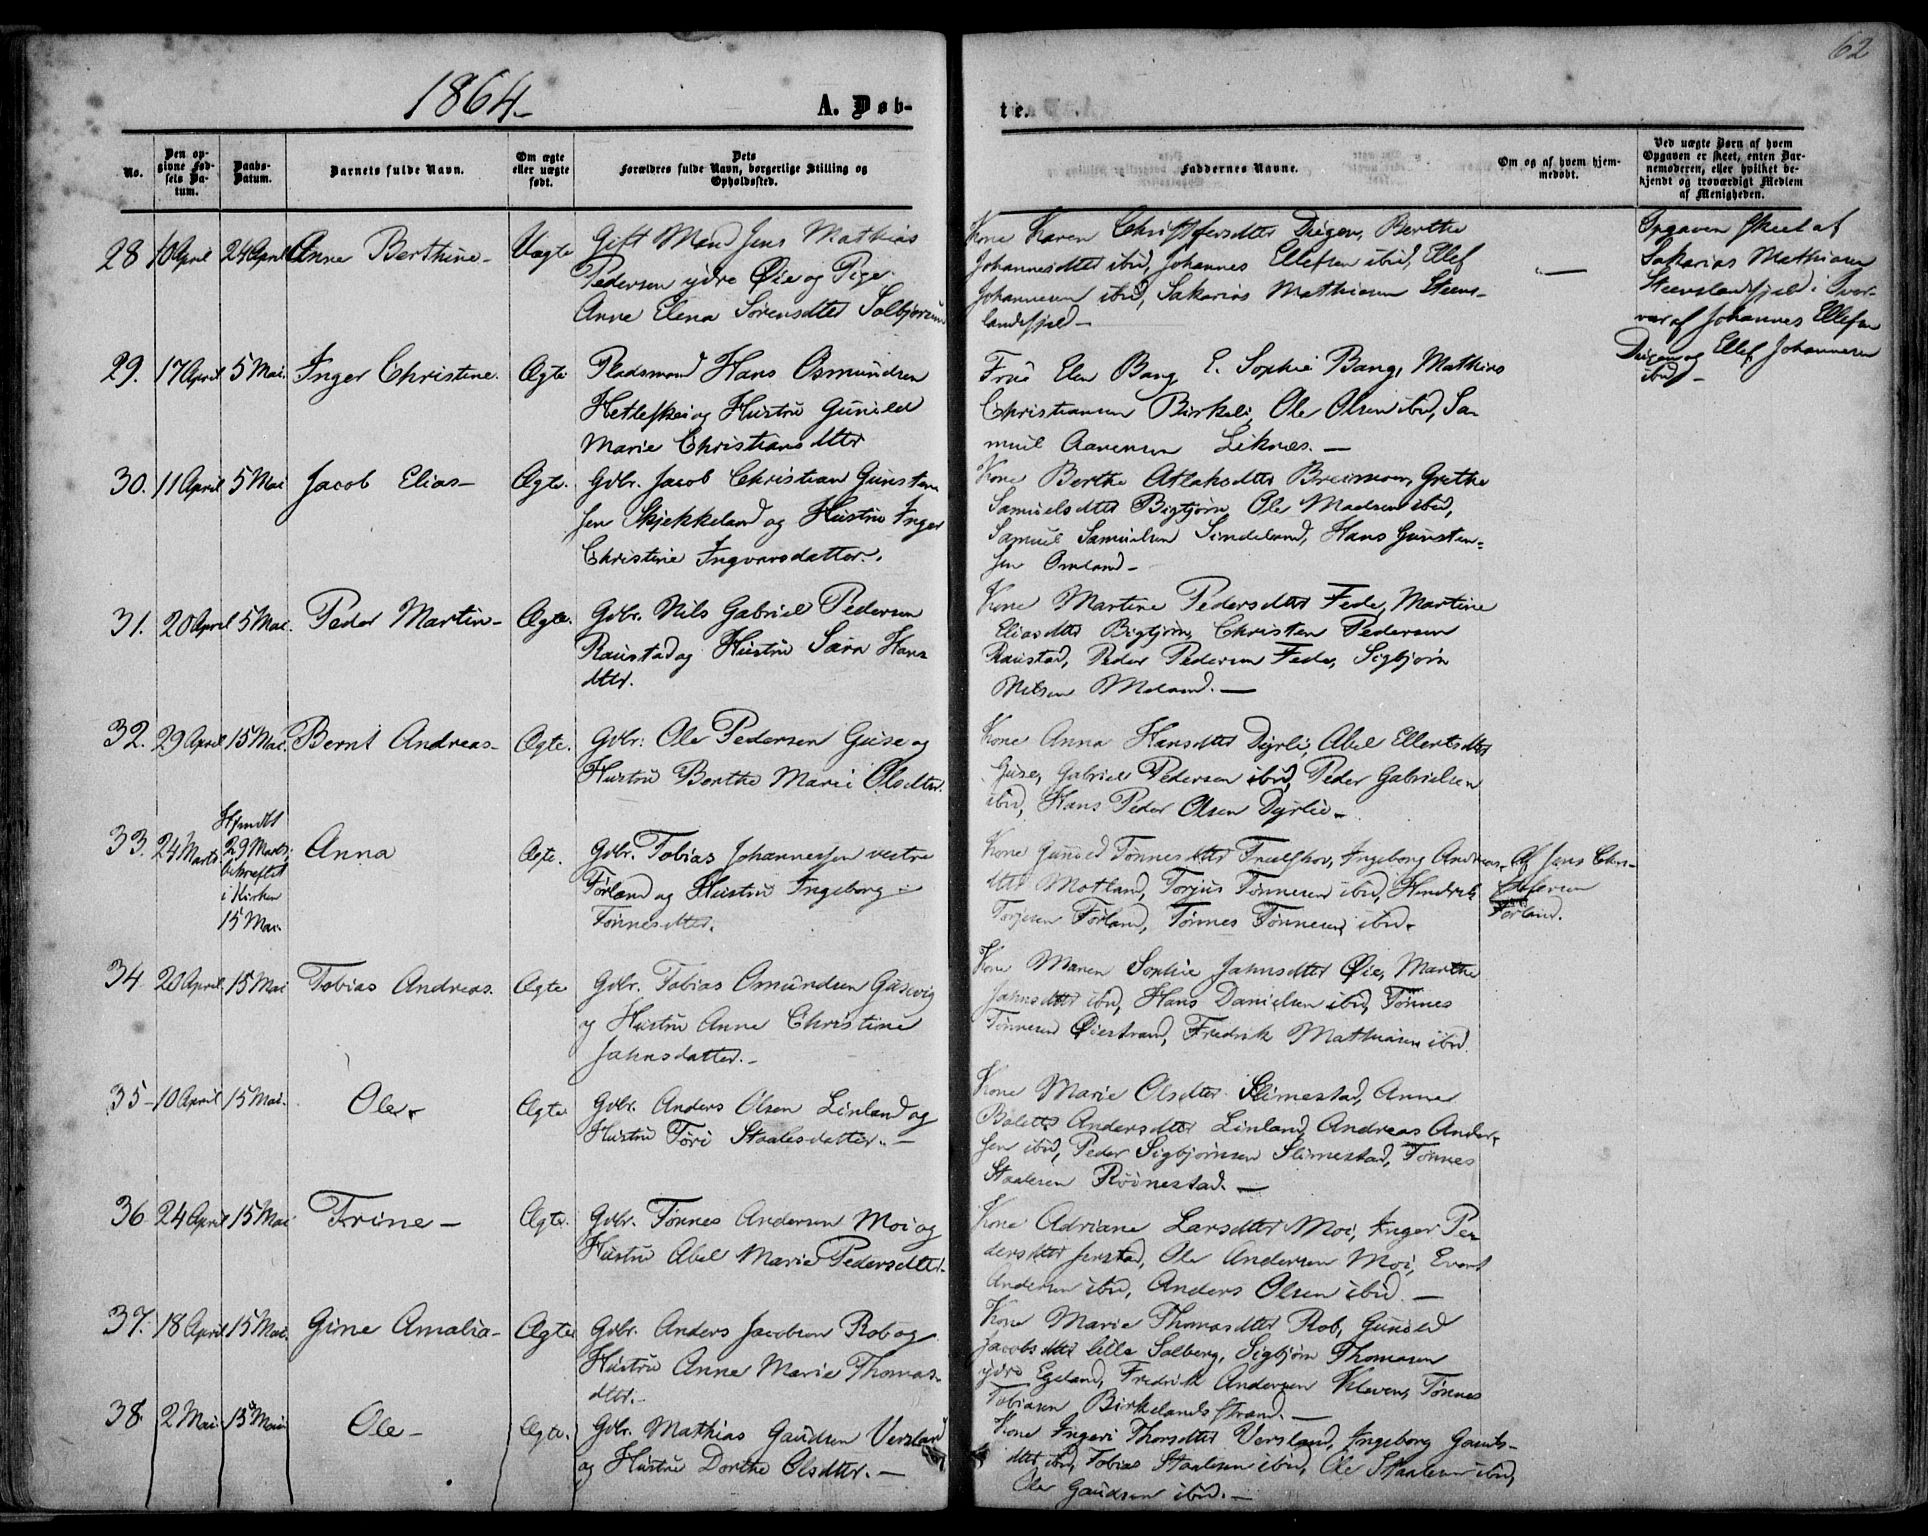 62
1864.
A. Døb-
te.
No.
Den op-
givne Fød-
sels Da-
tum.
Daabs-
Datum.
Barnets fulde Navn.
Om ægte
eller uægte
født.
Dets
Forældres fulde Navn, borgerlige Stilling og
Opholdssted.
Faddernes Navne.
Om og af hvem hjem-
medøbt.
Ved uægte Børn af hvem
Opgaven er skeet, enten Bar-
nemoderen, eller hvilket be-
kjendt og troværdigt Medlem
af Menigheden.
28 10 April 24 April Anne Berthine- Uægte
Gift Mand Jens Mathias
Pedersen ydre Øie og Pige
Anne Elena Sørensdtter
Kone Karen Dürgen, Berthe
Johannesdtter ibid, Johannes Ellefsen ibid, Ellef
Johannesen ibid, Sakarias Mathiasen Steens-
landsfjeld-
—
Opgaven skeet af
Sakarias Mathiasen
Steenslandsfjeld i Over-
vær af Johannes Ellefsen
og Ellef Johannesen
ibid-
29. 17 April 5 Mai. Inger Christine. Ægte
Pladsmand Hans Osmundsen
og Hustru Gunild
Marie Christiansdtter
Frue Elen Bang, E. Sophie Bang, Mathias
Christiansen Birkeli, Ole Olsen ibid, Sa-
muel Aanensen Liknes.—
30. 11 April 5 Mai Jacob Elias- Ægte.
Gdbr. Jacob Christian Gunsten
sen Skjekkeland og Hustru Inger
Christine Ingvarsdatter.
Kone Berthe Atlaksdtter Grethe
Samuelsdtter Bigtjørn, Ole Madsen ibid,
Samuel Samuelsen Sindeland, Hans Gunsten-
sen Omland-
31. 20 April 5 Mai. Peder Martin- Ægte.
Gdbr. Nils Gabriel Pedersen
Raustad og Hustru Sara Hans
dtter.
Kone Martine Pedersdtter Fede, Martine
Eliasdtter Bigtjørn, Christen Pedersen
Raustad, Peder Pedersen Fede, Sigbjørn
Nilsen Moland.—
32. 29 April 15 Mai. Bernt Andreas- Ægte.
Gdbr: Ole Pedersen Guse og
Hustru Berthe Marie Olsdtter.
Kone Anna Hansdtter Dyrli, Abel Ellertsdtter
Guse, Gabriel Pedersen ibid, Peder Gabrielsen
ibid, Hans Peder Olsen Dyrlie-
33. 24 Marts. Hjemdbt
29 Marts;
bekræftet
i Kirken
15 Mai.
Anna Ægte.
Gdbr. Tobias Johannessen vestre
Førland og Hustru Ingeborg
Tønnesdtter.
Kone Gunild Tønnesdtter Ingeborg Andreas-
dtter Motland, Torjus Tønnesen ibid, Hendrik
Torjusen Førland, Tønnes Tønnesen ibid.
Af Jens
Førland.
34 20 April 15 Mai Tobias Andreas. Ægte
Gdbr. Tobias Omundsen Gasevig
og Hustru Anne Christine
Jahnsdatter.-
Kone Maren Sophie Jahnsdtter Øie, Marthe
Jahnsdtter ibid, Hans Danielsen ibid, Tønnes
Tønnesen Øiestrand, Fredrik Mathiasen ibid.
35- 10 April 15 Mai. Ole. Ægte
Gdbr. Anders Olsen Linland og
Hustru Tøri Staalesdatter.—
Kone Marie Olsdtter Slimestad, Anne
Andersdtter Linland, Andreas Ander-
sen ibid, Peder Sigbjørnsen Slimestad, Tønnes
Staalesen Røinestad.—
36 24 April 15 Mai Trine- Ægte.
Gdbr. Tønnes Andersen Moi og
Hustru Abel Marie Pedersdtter.
Kone Adriane Larsdtter Moi, Inger Pe-
dersdtter Jerstad, Ole Andersen Moi, Evert
Andersen ibid, Anders Olsen ibid.—
37. 18 April 15 Mai. Gine Amalia- Ægte
Gdbr. Anders Jacobsen Rob og
Hustru Anne Marie Thomas-
dtter.-
Kone Marie Thomasdtter Rob, Gunild
Jacobsdtter lille Solberg, Sigbjørn Thomasen
ydre Egeland, Fredrik Andersen Kleven, Tønnes
Tobiasen Birkelandsstrand.—
38. 2 Mai. 15 Mai Ole- Ægte.
Gdbr. Mathias Gaudsen Versland
og Hustru Dorthe Olsdtter.—
Kone Ingeri Thorsdtter Versland, Ingeborg Gauds-
dtter ibid, Tobias Staalesen ibid, Ole Staalesen ibid,
Ole Gaudsen ibid.—